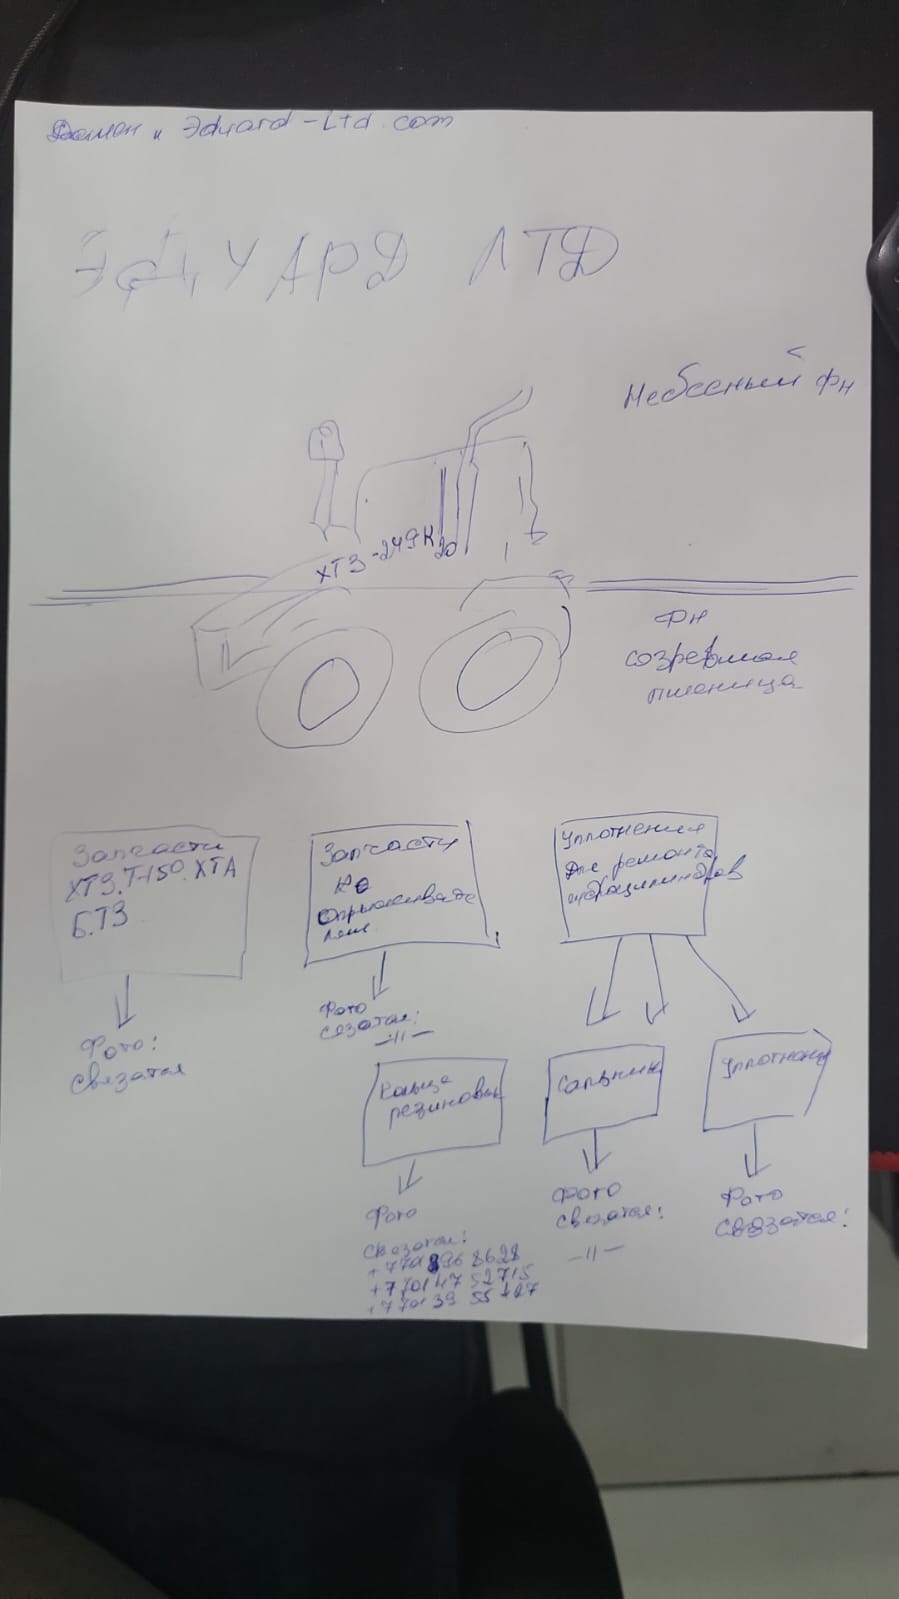 Домен " Эduard-Ltd.com
ЭДУАРД ЛТД
Небесный фн
ХТЗ-249К
20
фн
созревшая
пшеница
Запчасти
ХТЗ.Т-150.ХТА
Б.ТЗ
Фото:
Связатся
Запчасти
Ко
Опрыскивате
лям
Фото
связатся:
-//-
Уплотнения
Для ремонта
гидроцилиндров
Кольца
резиновые
Фото
связатся:
+7701 47 52715
+7701 39 55 427
Сальник
Фото
связатся:
-//-
Уплотнения
Фото
связатся: